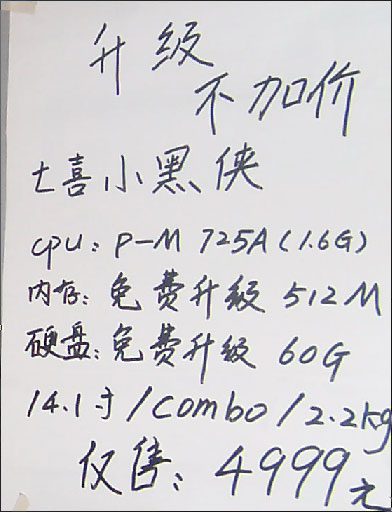 升级
不加价
七喜小黑侠
CPU: P-M 725A(1.6G)
内存: 免费升级 512M
硬盘: 免费升级 60G
14.1寸/Combo/2.2kg
仅售: 4999元